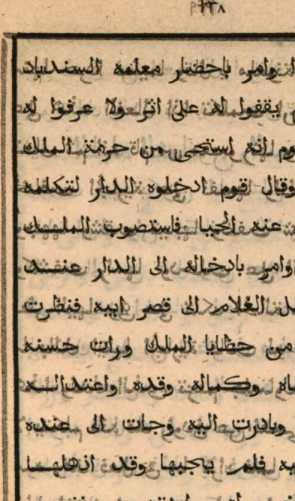 وامر باحضار معلمه السندباد
يقفوا له على اثر ولا عرفوا له
انه استحى من حرمة الملك
وقال لقوم ادخلوه الدار لتكلمه
عنه الحيا فاستصوب الملك
وامر بادخاله الى الدار عند
الغلام الى قصر ابيه فنظرت
من حظايا الملك ورات حسنه
وكماله وقده واعتداله
وبادرت اليه وجات الى عنده
فلم يجبها وقد اذهلها